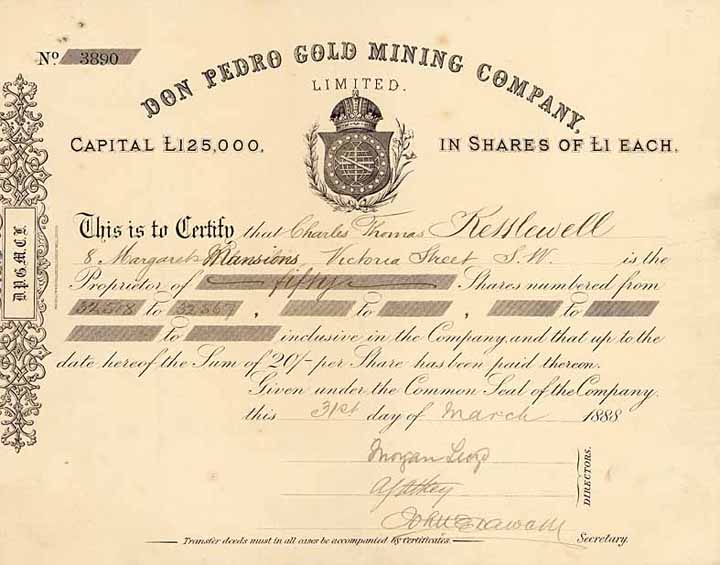 No. 3890
DON PEDRO GOLD MINING COMPANY,
LIMITED.
CAPITAL £125,000, IN SHARES OF £1 EACH.
This is to Certify that Charles Thomas Kettlewell
8 Margarets Mansions, Victoria Street S.W. is the
Proprietor of fifty Shares numbered from
32518 to 32567, to , to
to inclusive in the Company, and that up to the
date hereof the Sum of 20/- per Share has been paid thereon.
Given under the Common Seal of the Company.
this 31st day of March 1888
Morgan
DIRECTORS.
John
Secretary.
Transfer deeds must in all cases be accompanied by Certificates.
D.P.G.M.C.L.